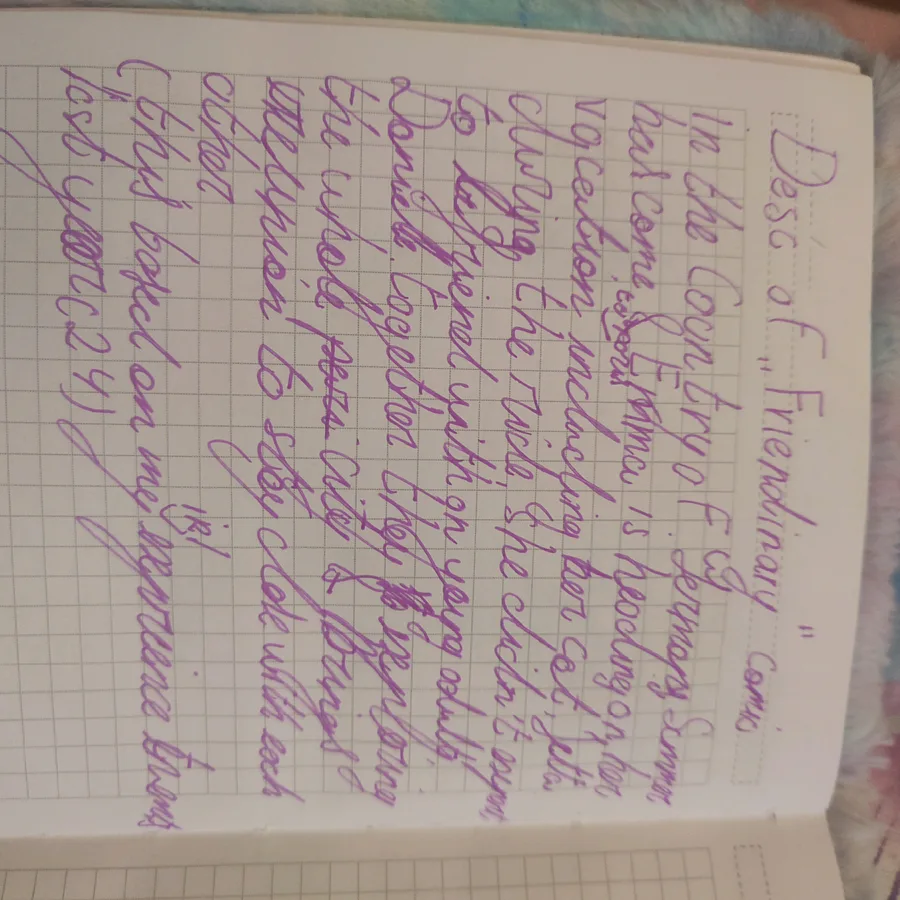 Desc of "Friendinary" comic
In the Country of Germany Summer
has come & Emma is heading on her
vacation including her cat, Bella
during the ride, She didn't expect
to befriend with on young adult
Daniel. Together they exploring
the whole City & brings
to stay close with each
other
(this based on my irl experience trieng
last year 24)